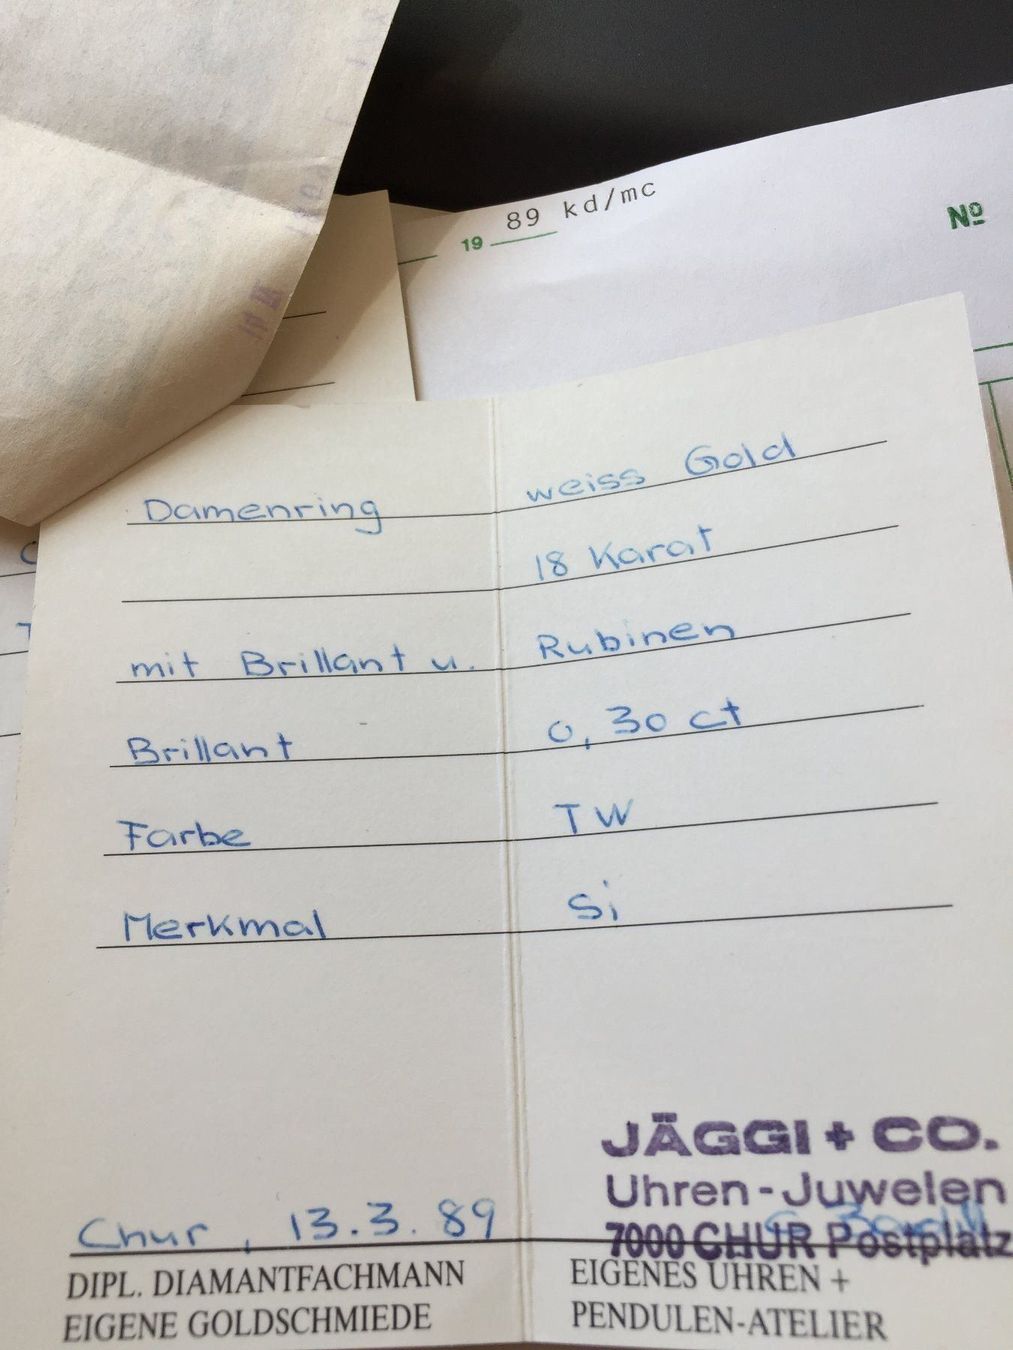 19 89 kd/mc
Nº
Damenring weiss Gold
18 Karat
mit Brillant u. Rubinen
Brillant 0,30 ct
Farbe TW
Merkmal Si
JÄGGI + CO.
Uhren - Juwelen
7000 CHUR Postplatz
Chur, 13.3.89
DIPL. DIAMANTFACHMANN
EIGENE GOLDSCHMIEDE
EIGENES UHREN +
PENDULEN-ATELIER